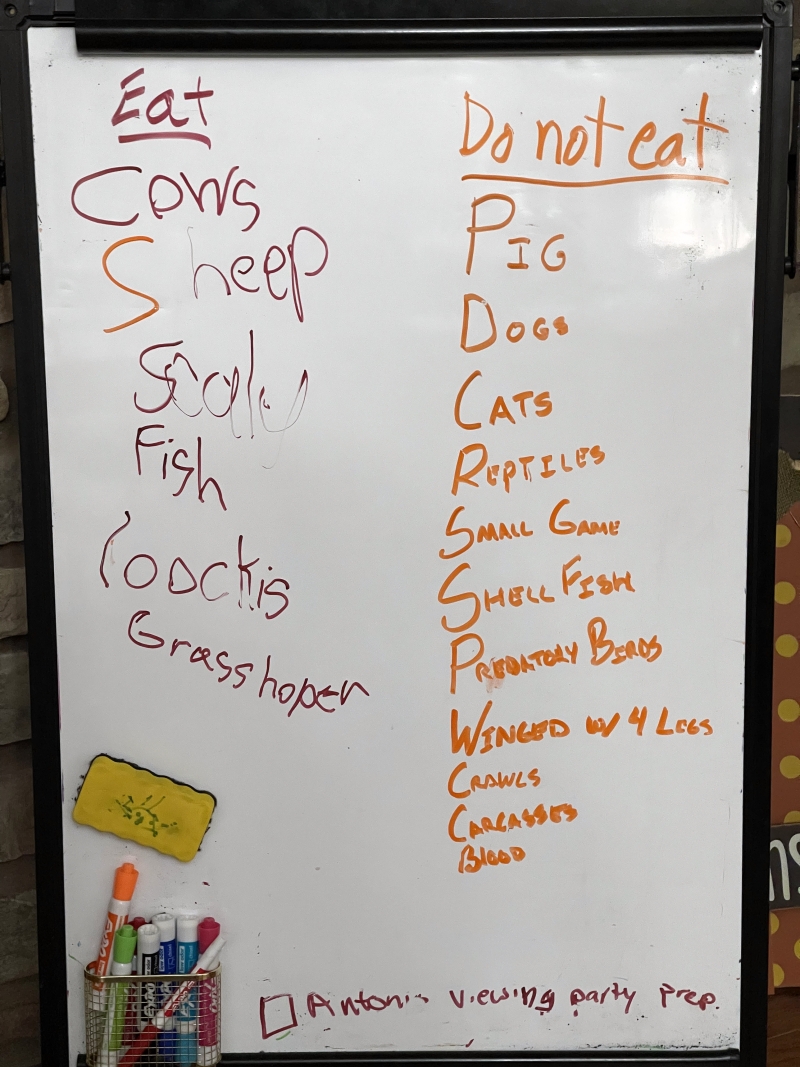 Eat
Cows
Sheep
Scaly
Fish
Grasshoper
Do not eat
PIG
DOGS
CATS
REPTILES
SMALL GAME
SHELL FISH
PREDATORY BIRDS
WINGED W/ 4 LEGS
CRAWLS
CARCASSES
BLOOD
viewing party Prep
EXPO